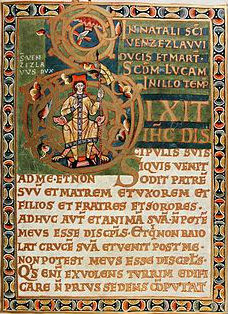 IN NATALI SCI
VENZEZLAVVI
DUCIS ET MART
SCDM LUCAM
IN ILLO TEMP
S VENCEZLAVVS DUX
DIXIT
IHC DIS
CIPULIS SUIS
SIQUIS VENIT
AD ME ET NON ODIT PATRE
SVV ET MATREM ET UXOREM ET
FILIOS ET FRATRES ET SORORES
ADHUC AVT ET ANIMA SVA N POTE
MEVS ESSE DISCPLS ET Q NON BAIO
LAT CRUCE SVA ET VENIT POST ME
NON POTEST MEVS ESSE DISCPLS
QIS ENI EX VOLENS TURRIM EDIFI
CARE N PRIUS SEDENS COPUTAT